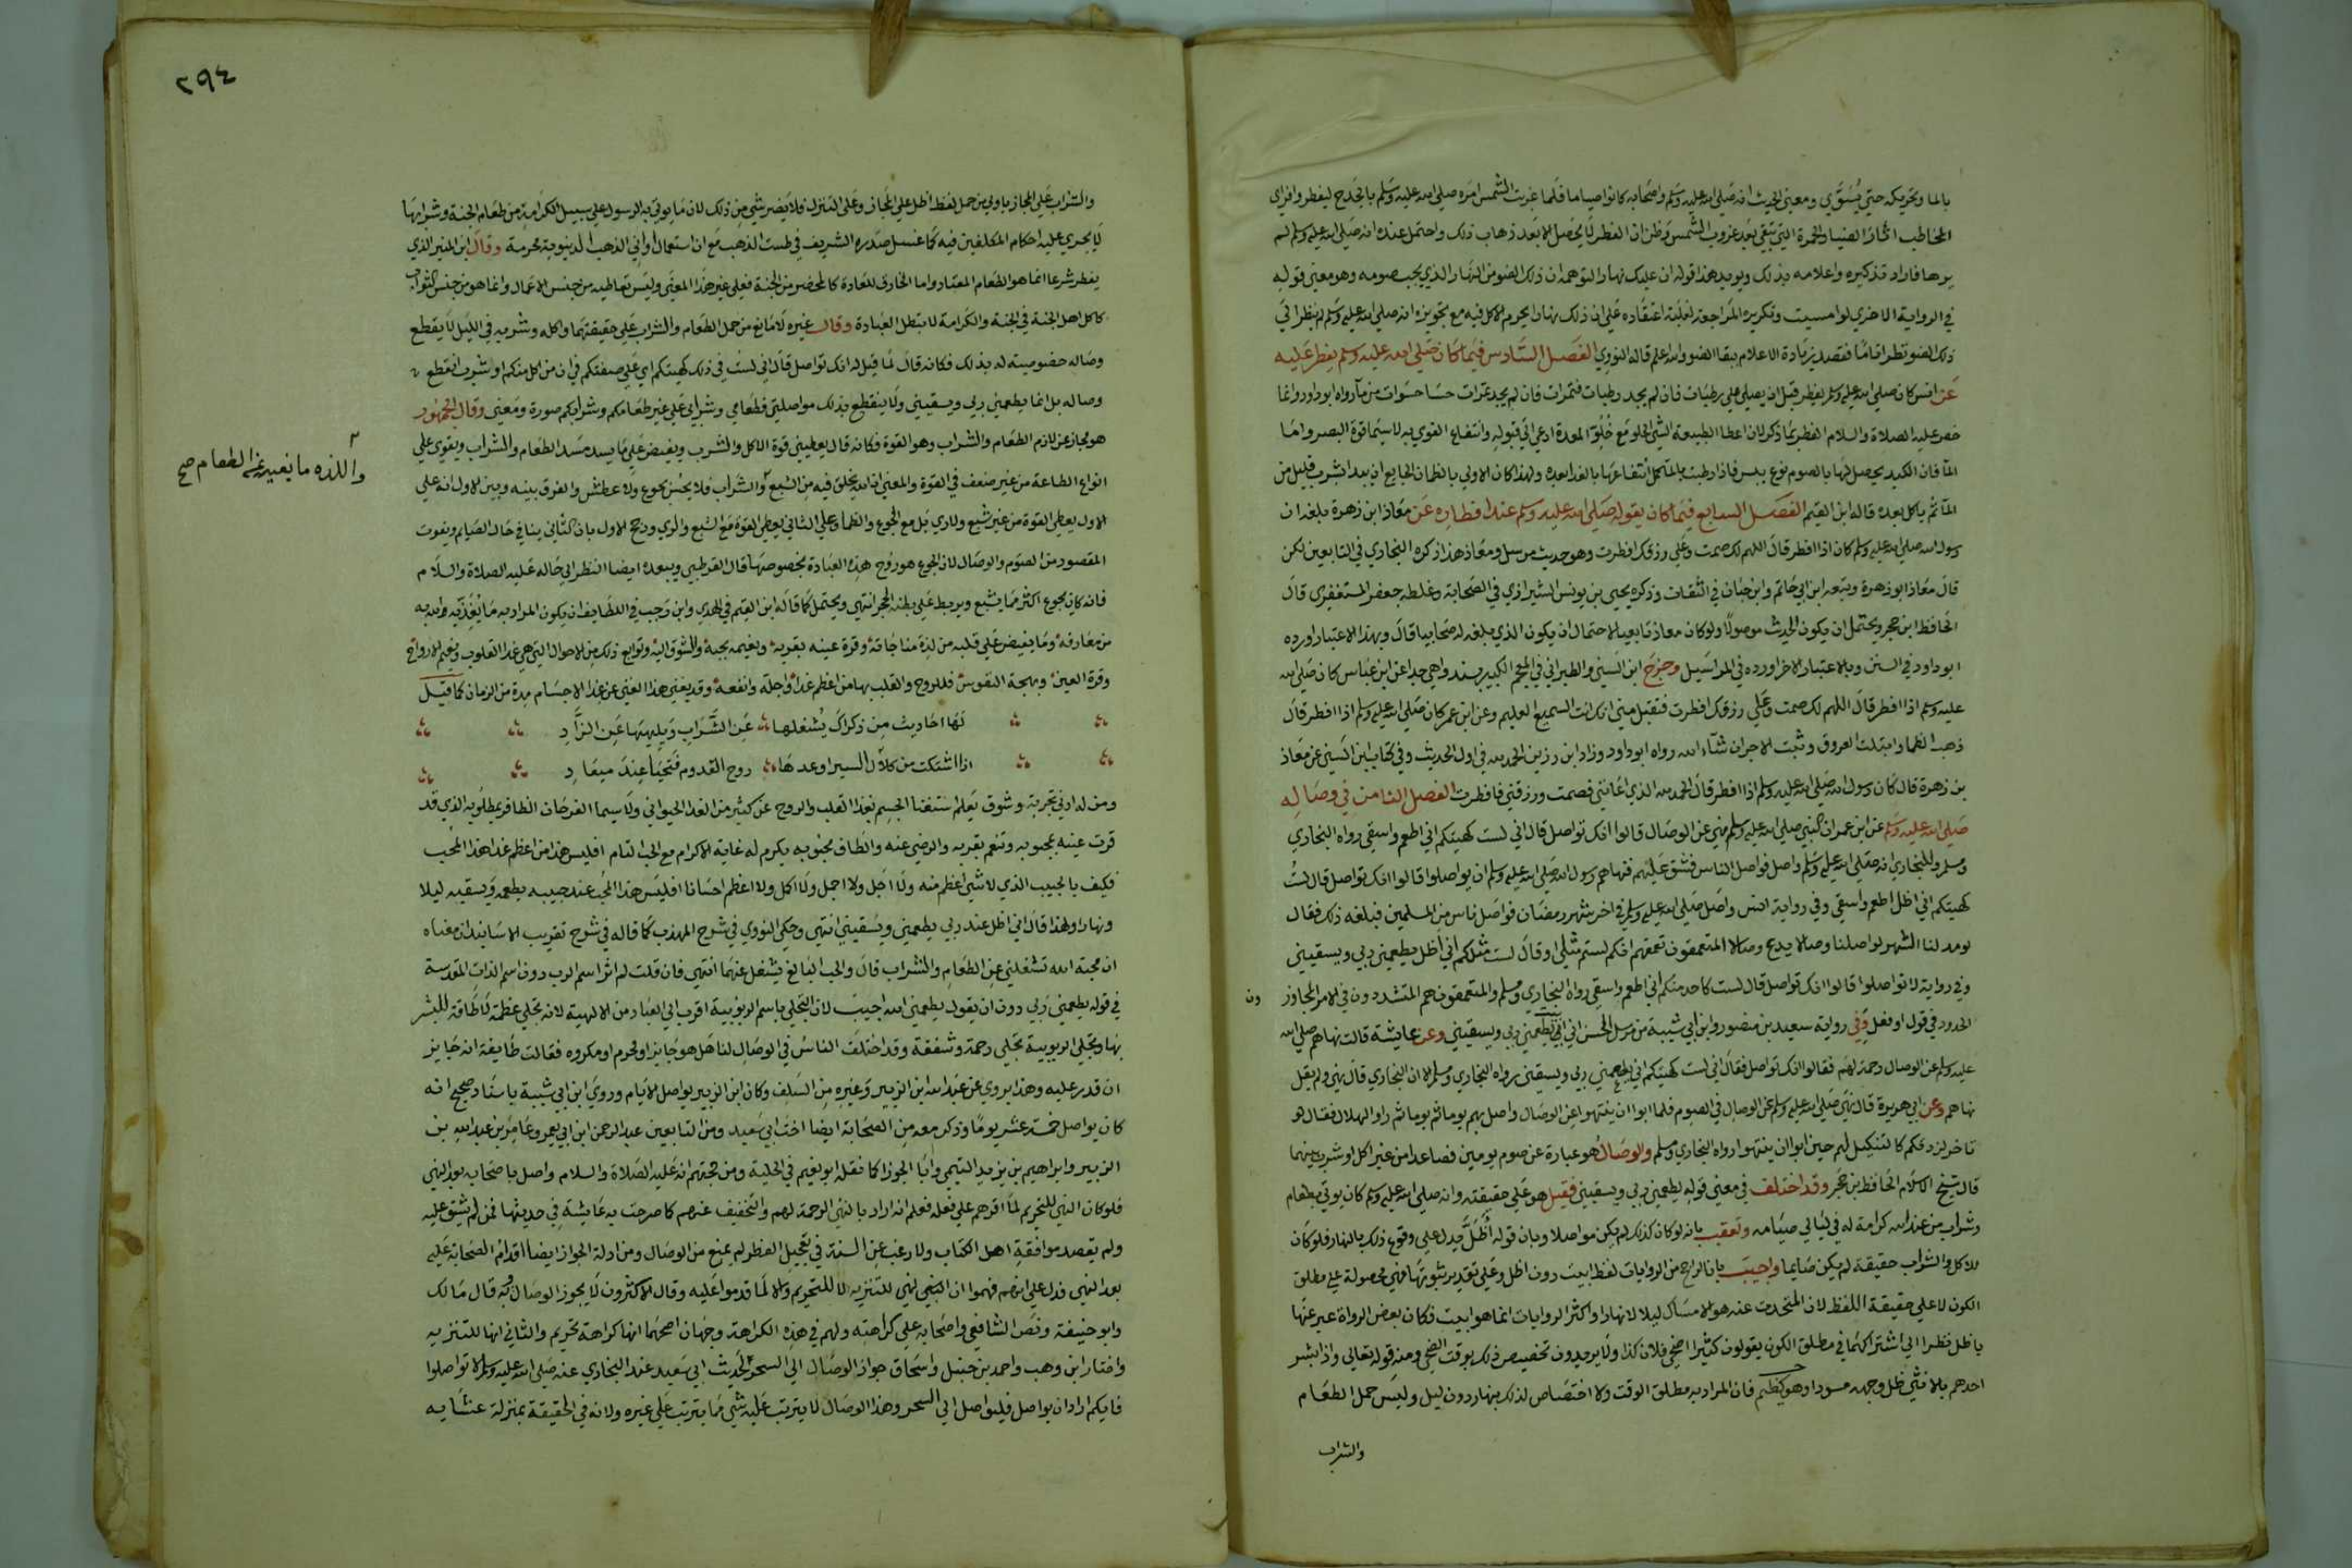 بالما وتحريكه حتى يُستَوَّي ومعنى الحديث انه صلى الله عليه وسلم واصحابه كانوا صياما فلما غربت الشمس امره صلى الله عليه وسلم بالجدح ليفطروا فراى
المخاطب اثار الضيا والحمرة التي تبقى بعد غروب الشمس وظن ان الفطر لا يحصل الا بعد ذهاب ذلك واحتمل عنده انه صلى الله عليه وسلم لم
يرها فاراد تذكيره واعلامه بذلك ويويد هذا قوله ان عليك نهارا لتوهمه ان ذلك الضو من النهار الذي يجب صومه وهو معنى قوله
في الرواية الاخرى لو امسيت وتكريره المراجعة لغلبة اعتقاده على ان ذلك نهارا يحرم الاكل فيه مع تجويزه انه صلى الله عليه وسلم لم ينظر الى
ذلك الضو نظرا تاما فقصد زيادة الاعلام ببقا الضو والله اعلم قاله النووي الفصل السادس فيما كان صلى الله عليه وسلم يفطر عليه
عن انس كان صلى الله عليه وسلم يفطر قبل ان يصلي على رطبات فان لم يجد رطبات فتمرات فان لم يجد تمرات حسا حسوات من ما رواه ابو داود وانما
خص عليه الصلاة والسلام الفطر بما ذكر لان اعطا الطبيعة الشي الحلو مع خُلُوّ المعدة ادعى الى قبوله وانتفاع القوى به لا سيما قوة البصر واما
الما فان الكبد يحصل لها بالصوم نوع يبس فاذا رطبت بالما كمل انتفاعها بالغذا بعده ولهذا كان الاولى بالظمان الجايع ان يبدا بشرب قليل من
الما ثم ياكل بعده قاله ابن القيم الفصل السابع فيما كان يقوله صلى الله عليه وسلم عند افطاره عن معاذ ابن زهرة بلغه ان
رسول الله صلى الله عليه وسلم كان اذا افطر قال اللهم لك صمت وعلى رزقك افطرت وهو حديث مرسل ومعاذ هذا ذكره البخاري في التابعين لكن
قال معاذ ابو زهرة وتبعه ابن ابي حاتم وابن حبان في الثقات وذكره يحيى بن يونس الشيرازي في الصحابة وغلطه جعفر المستغفري قال
الحافظ ابن حجر ويحتمل ان يكون الحديث موصولا ولو كان معاذ تابعيا لاحتمال ان يكون الذي بلغه له صحابيا قال وبهذا الاعتبار اورده
ابو داود في السنن وبالاعتبار الاخر اورده في المراسيل وخرج ابن السني والطبراني في المعجم الكبير بسند واهي جدا عن ابن عباس كان صلى الله
عليه وسلم اذا افطر قال اللهم لك صمت وعلى رزقك افطرت فتقبل مني انك انت السميع العليم وعن ابن عمر كان صلى الله عليه وسلم اذا افطر قال
ذهب الظما وابتلت العروق وثبت الاجر ان شاء الله رواه ابو داود وزاد ابن رزين الحمد لله في اول الحديث وفي كتاب ابن السني عن معاذ
بن زهرة قال كان رسول الله صلى الله عليه وسلم اذا افطر قال الحمد لله الذي اعانني فصمت ورزقني فافطرت الفصل الثامن في وصاله
صلى الله عليه وسلم عن ابن عمر ان النبي صلى الله عليه وسلم نهى عن الوصال قالوا انك تواصل قال اني لست كهيئتكم اني اطعم واسقى رواه البخاري
ومسلم وللبخاري انه صلى الله عليه وسلم واصل فواصل الناس فشق عليهم فنهاهم رسول الله صلى الله عليه وسلم ان يواصلوا قالوا انك تواصل قال لست
كهيئتكم اني اظل اطعم واسقى وفي رواية انس واصل صلى الله عليه وسلم في اخر شهر رمضان فواصل ناس من المسلمين فبلغه ذلك فقال
لو مد لنا الشهر لواصلنا وصالا يدع المتعمقون تعمقهم انكم لستم مثلي او قال لست مثلكم اني اظل يطعمني ربي ويسقيني
وفي رواية لا تواصلوا قالوا انك تواصل قال لست كاحد منكم اني اطعم واسقى رواه البخاري ومسلم والمتعمقون هم المتشددون في الامر المجاوزون
الحدود في قول او فعل وفي رواية سعيد بن منصور وابن ابي شيبة من مرسل الحسن اني ابيت يطعمني ربي ويسقيني وعن عايشة قالت نهاهم صلى الله
عليه وسلم عن الوصال رحمة لهم فقالوا انك تواصل فقال اني لست كهيئتكم اني يطعمني ربي ويسقيني رواه البخاري ومسلم الا ان البخاري قال نهى ولم يقل
نهاهم وعن ابي هريرة قال نهى صلى الله عليه وسلم عن الوصال في الصوم فلما ابوا ان ينتهوا عن الوصال واصل بهم يوما ثم يوما ثم راوا الهلال فقال لو
تاخر لزدتكم كالتنكيل لهم حين ابوا ان ينتهوا رواه البخاري ومسلم والوصال هو عبارة عن صوم يومين فصاعدا من غير اكل او شرب بينهما
قال شيخ الاسلام الحافظ بن حجر وقد اختلف في معنى قوله يطعمني ربي ويسقيني فقيل هو على حقيقته وانه صلى الله عليه وسلم كان يوتى بطعام
وشراب من عند الله كرامة له في ليالي صيامه وتعقب بانه لو كان كذلك لم يكن مواصلا وبان قوله أظَلّ يدل على وقوع ذلك بالنهار فلو كان
الاكل والشراب حقيقة لم يكن صايما واجيب بان الراجح من الروايات لفظ ابيت دون اظل وعلى تقدير ثبوتها فهي محمولة على مطلق
الكون لا على حقيقة اللفظ لان المتحدث عنه هو الامساك ليلا لا نهارا واكثر الروايات انما هو ابيت فكان بعض الرواة عبر عنها
باظل نظرا الى اشتراكهما في مطلق الكون يقولون كثيرا اضحى فلان كذا ولا يريدون تخصيص ذلك بوقت الضحى ومنه قوله تعالى واذا بشر
احدهم بالانثى ظل وجهه مسودا وهو كظيم فان المراد به مطلق الوقت ولا اختصاص لذلك بنهار دون ليل وليس حمل الطعام
والشراب
٢٩٤
والشراب على المجاز باولى من حمل لفظ اظل على المجاز وعلى التنزل فلا يضر شي من ذلك لان ما يوتى به الرسول على سبيل الكرامة من طعام الجنة وشرابها
لا يجري عليه احكام المكلفين فيه كما غسل صدره الشريف في طست الذهب مع ان استعمال اواني الذهب الدنيوية محرمة وقال ابن المنير الذي
يفطر شرعا انما هو الطعام المعتاد واما الخارق للعادة كالمحضر من الجنة فعلى غير هذا المعنى وليس تعاطيه من جنس الاعمال وانما هو من جنس الثواب
كاكل اهل الجنة في الجنة والكرامة لا تبطل العبادة وقال غيره لا مانع من حمل الطعام والشراب على حقيقتهما واكله وشربه في الليل لا يقطع
وصاله خصوصية له بذلك فكانه قال لما قيل له انك تواصل قال اني لست في ذلك كهيئتكم اي على صفتكم في ان من اكل منكم او شرب انقطع
وصاله بل انما يطعمني ربي ويسقيني ولا ينقطع بذلك مواصلتي فطعامي وشرابي على غير طعامكم وشرابكم صورة ومعنى وقال الجمهور
هو مجاز عن لازم الطعام والشراب وهو القوة فكانه قال يعطيني قوة الاكل والشرب ويفيض علي ما يسد مسد الطعام والشراب ويقوي على
انواع الطاعة من غير ضعف في القوة والمعنى ان الله يخلق فيه من الشبع والشراب فلا يحس بجوع ولا عطش والفرق بينه وبين الاول انه على
الاول يعطي القوة من غير شبع ولا ري بل مع الجوع والظما وعلى الثاني يعطي القوة مع الشبع والري ورجح الاول بان الثاني ينافي حال الصايم ويفوت
المقصود من الصوم والوصال لان الجوع هو روح هذه العبادة بخصوصها قال القرطبي ويبعده ايضا النظر الى حاله عليه الصلاة والسلام
فانه كان يجوع اكثر مما يشبع ويربط على بطنه الحجر انتهى ويحتمل كما قاله ابن القيم في الهدي وابن رجب في اللطايف ان يكون المراد به ما يُغَذّيه الله به
من معارفه وما يفيض على قلبه من لذة مناجاته وقرة عينه بقربه ونعيمه بحبه والشوق اليه وتوابع ذلك من الاحوال التي هي غذا القلوب ونعيم الارواح
وقرة العين وبهجة النفوس فللروح والقلب بها من اعظم غذا واجله وانفعه وقد يغني هذا الغذى عن غذا الاجسام مدة من الزمان كما قيل
لها احاديث من ذكراك يُشغلها عن الشَّراب ويلهيها عن الزَّاد
اذا اشتكت من كلال السير اوعدها روح القدوم فتحيا عند ميعاد
ومن له ادنى تجربة وشوق يعلم استغنا الجسم بغذا القلب والروح عن كثير من الغذا الحيواني ولا سيما الفرحان الظافر بمطلوبه الذي قد
قرت عينه بمحبوبه وتنعم بقربه والرضى عنه والطاف محبوبه يكرم له غاية الاكرام مع الحب التام افليس هذا من اعظم غذا هذا المحب
فكيف بالحبيب الذي لا شي اعظم منه ولا اجل ولا اجمل ولا اكمل ولا اعظم احسانا افليس هذا المحب عند حبيبه يطعمه ويسقيه ليلا
ونهارا ولهذا قال اني اظل عند ربي يطعمني ويسقيني انتهى وحكى النووي في شرح المهذب كما قاله في شرح تقريب الاسانيد ان معناه
ان محبة الله تشغلني عن الطعام والشراب قال والحب البالغ يشغل عنهما انتهى فان قلت لم اثر اسم الرب دون اسم الذات المقدسة
في قوله يطعمني ربي دون ان يقول يطعمني الله اجيب لان التجلي باسم الربوبية اقرب الى العباد من الالهية لانه تجلي عظمة لا طاقة للبشر
بها وتجلي الربوبية تجلي رحمة وشفقة وقد اختلف الناس في الوصال لنا هل هو جايز او محرم او مكروه فقالت طايفة انه جايز
ان قدر عليه وهذا يروى عن عبد الله ابن الزبير وغيره من السلف وكان ابن الزبير يواصل الايام وروى ابن ابي شيبة باسناد صحيح انه
كان يواصل خمسة عشر يوما وذكر معه من الصحابة ايضا اخت ابي سعيد ومن التابعين عبد الرحمن ابن ابي يعمر وعامر بن عبد الله بن
الزبير وابراهيم بن يزيد التيمي وابا الجوزا كما نقله ابو نعيم في الحلية ومن حجتهم انه عليه الصلاة والسلام واصل باصحابه بعد النهي
فلو كان النهي للتحريم لما اقرهم على فعله فعلم انه اراد بالنهي الرحمة لهم والتخفيف عنهم كما صرحت به عايشة في حديثها فمن لم يشق عليه
ولم يقصد موافقة اهل الكتاب ولا رغب عن السنة في تعجيل الفطر لم يمنع من الوصال ومن ادلة الجواز ايضا اقدام الصحابة عليه
بعد النهي فدل على انهم فهموا ان النهي للتنزيه لا للتحريم والا لما قدموا عليه وقال الاكثرون لا يجوز الوصال وبه قال مالك
وابو حنيفة ونص الشافعي واصحابه على كراهته ولهم في هذه الكراهة وجهان اصحهما انها كراهة تحريم والثاني انها للتنزيه
واختار ابن وهب واحمد بن حنبل واسحاق جواز الوصال الى السحر لحديث ابي سعيد عند البخاري عنه صلى الله عليه وسلم لا تواصلوا
فايكم اراد ان يواصل فليواصل الى السحر وهذا الوصال لا يترتب عليه شي مما يترتب على غيره ولانه في الحقيقة بمنزلة عشايه
والري ما يغنيه عن الطعام صح